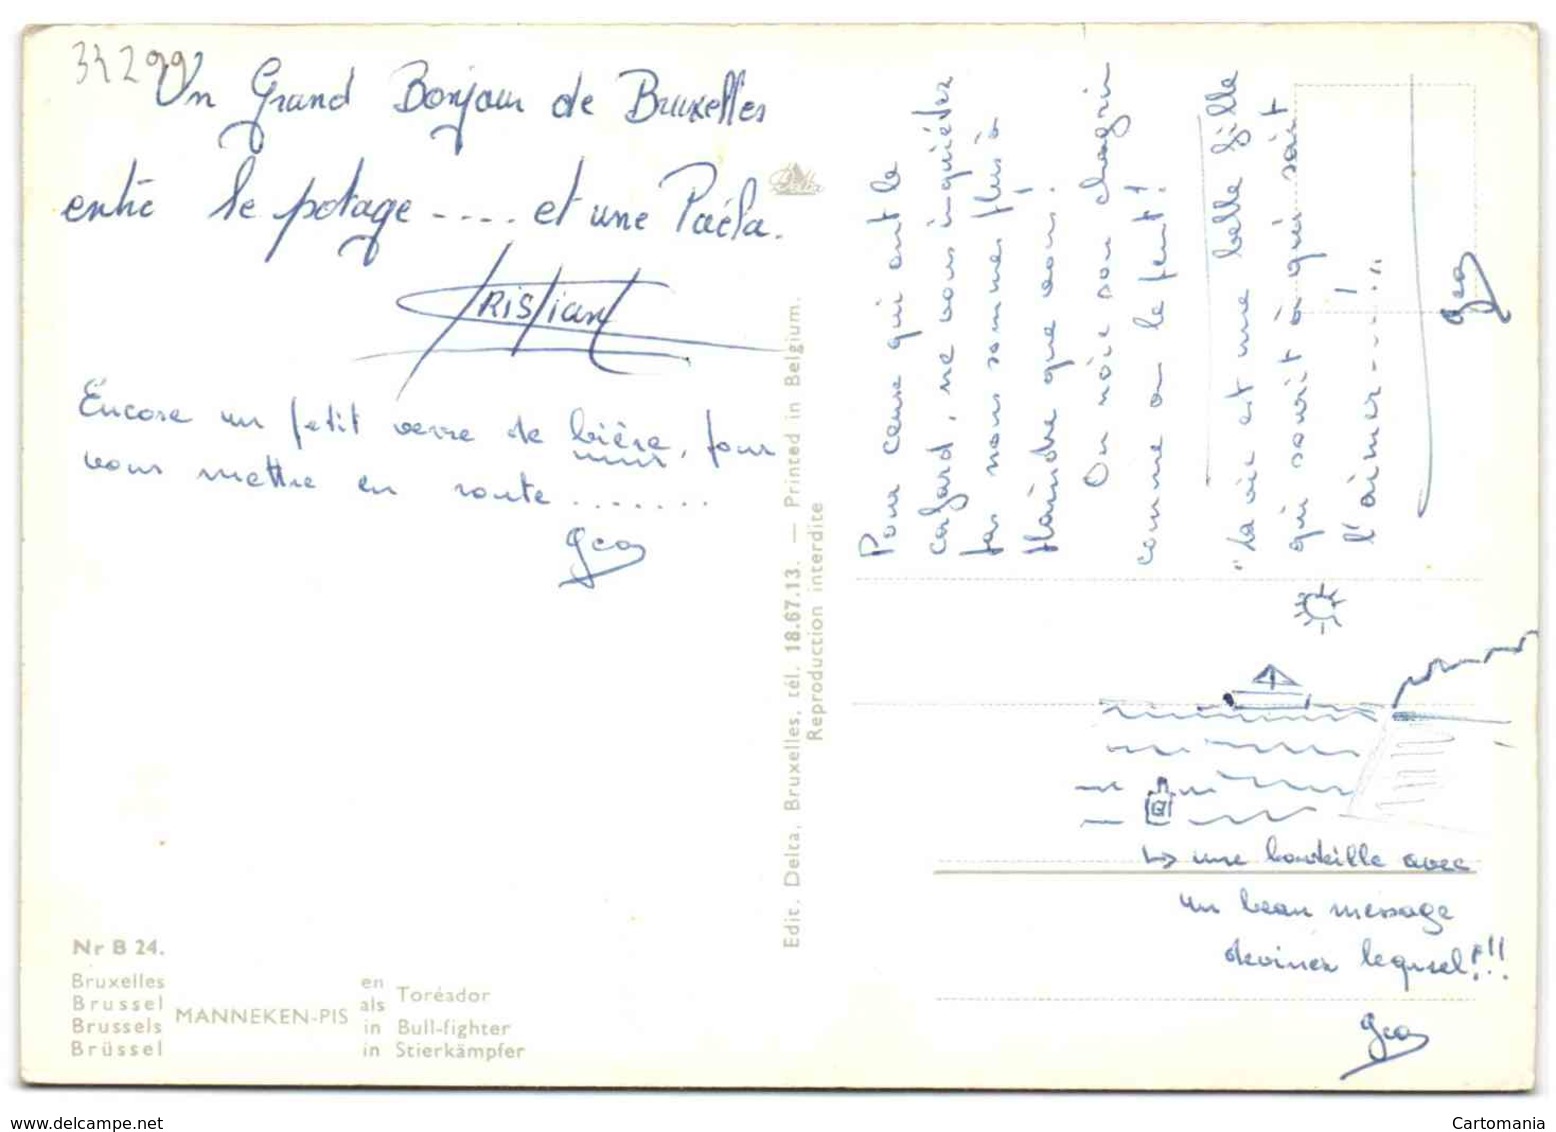 34299
Un Grand Bonjour de Bruxelles
entre le potage .... et une Paëla.
KRISTIAN
Encore un petit verre de bière, pour
vous mettre en route .......
Geo
Nr B 24.
Bruxelles
Brussel
Brussels
Brüssel
MANNEKEN-PIS
en
als
in
in
Toréador
Bull-fighter
Stierkämpfer
Delta
Edit. Delta, Bruxelles, tél. 18.67.13. — Printed in Belgium.
Reproduction interdite
Pour ceux qui ont le
cafard, ne vous inquiétez
pas nous sommes plus à
plaindre que vous!
On noie son chagrin
comme on le peut!
"La vie est une belle fille
qui sourit à qui sait
l'aimer....!"
Geo
↳ une bouteille avec
un beau message
devinez lequel!!!
Geo
www.delcampe.net
Cartomania